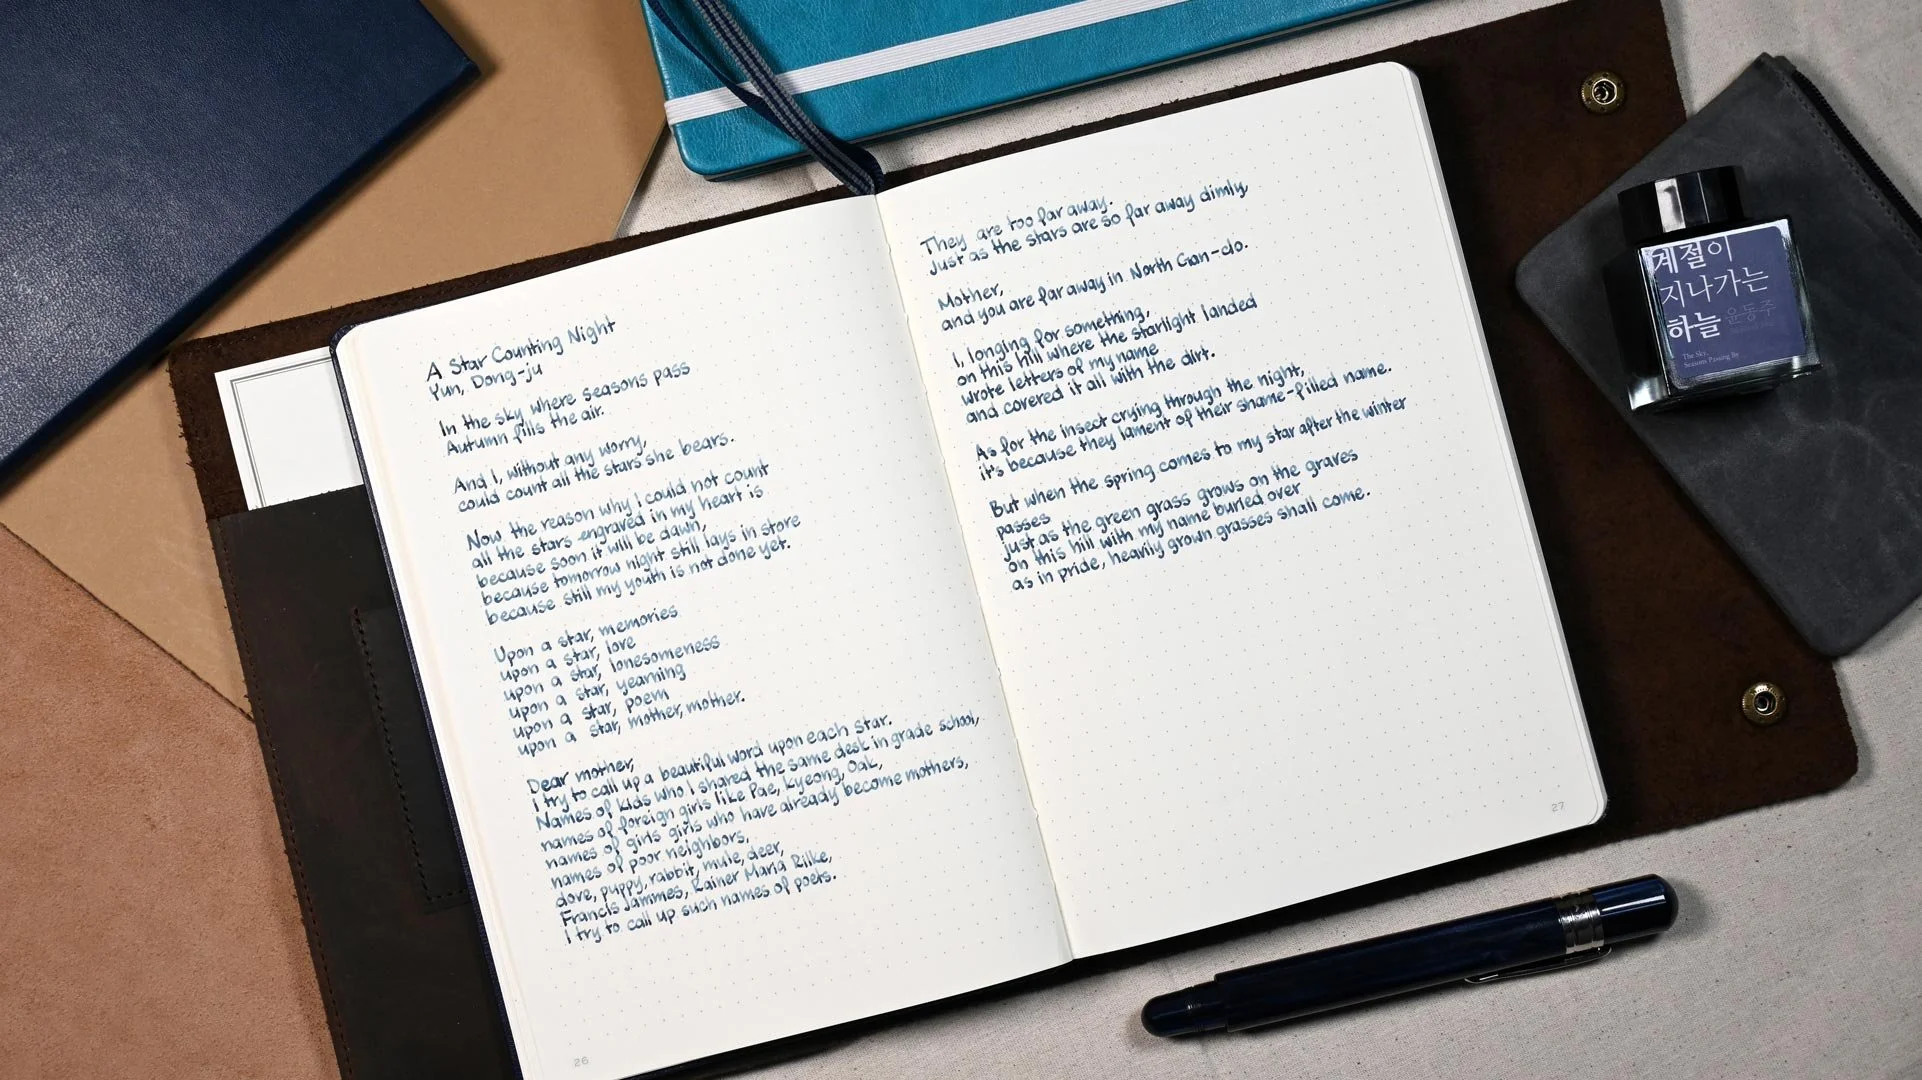 A Star Counting Night
Yun, Dong-ju
In the sky where seasons pass
Autumn fills the air.
And I, without any worry,
could count all the stars she bears.
Now the reason why I could not count
all the stars engraved in my heart is
because soon it will be dawn,
because tomorrow night still lays in store
because still my youth is not done yet.
Upon a star, memories
upon a star, love
upon a star, lonesomeness
upon a star, yearning
upon a star, poem
upon a star, mother, mother.
Dear mother,
I try to call up a beautiful word upon each star.
Names of kids who I shared the same desk in grade school,
names of foreign girls like Pae, Kyeong, Oak,
names of girls girls who have already become mothers,
names of poor neighbors,
dove, puppy, rabbit, mule, deer,
Francis Jammes, Rainer Maria Rilke,
I try to call up such names of poets.
26
They are too far away.
Just as the stars are so far away dimly,
Mother,
and you are far away in North Gan-do.
I, longing for something,
on this hill where the starlight landed
wrote letters of my name
and covered it all with the dirt.
As for the insect crying through the night,
it's because they lament of their shame-filled name.
But when the spring comes to my star after the winter
passes
just as the green grass grows on the graves
on this hill with my name buried over
as in pride, heavily grown grasses shall come.
27
계절이
지나가는
하늘 윤동주
The Sky,
Seasons Passing By